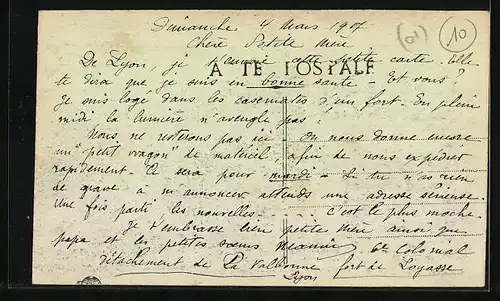 Dimanche 4 Mars 1917
(01)
10
Chère Petite Mère
CARTE POSTALE
De Lyon, je t'envoie cette petite carte. Elle
te dira que je suis en bonne santé - Et vous?
Je suis logé dans les casemates d'un fort. En plein
midi la lumière n'aveugle pas!
Nous ne resterons pas ici. On nous donne encore
un "petit wagon" de matériel, afin de nous expédier
rapidement. Ce sera pour mardi. Si tu n'as rien
de grave à m'annoncer attends une adresse sérieuse.
Une fois parti les nouvelles... c'est le plus moche.
Je t'embrasse bien petite mère ainsi que
papa et les petites sœurs
Colonial
détachement de La Valbonne fort de Loyasse
Lyon